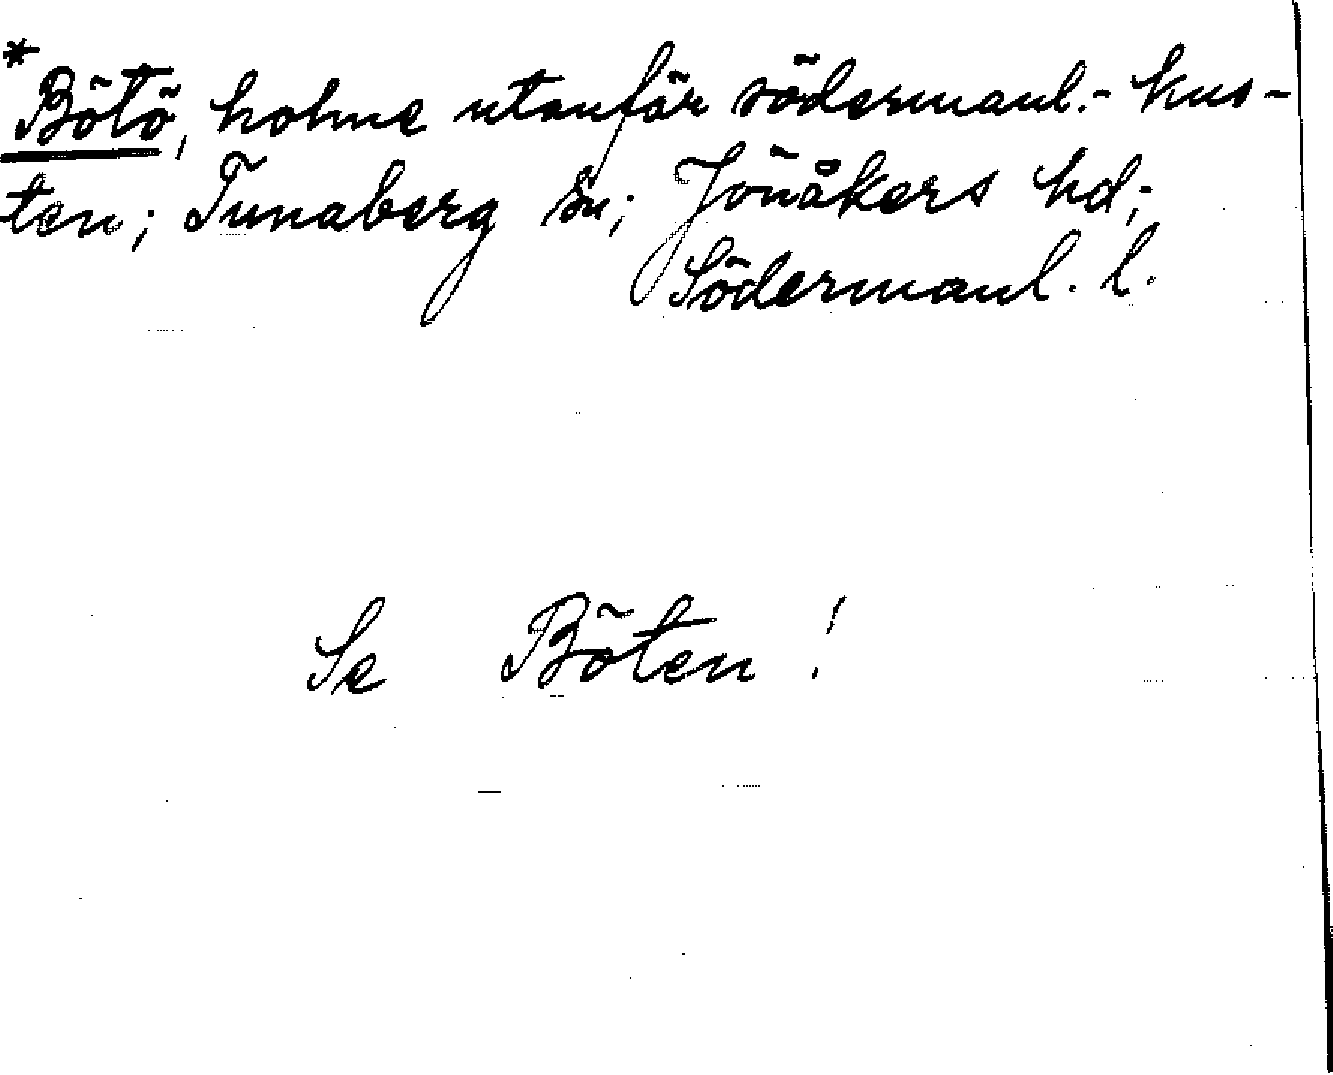 *Bötö, holme utanför södermanl.- kus-
ten; Tunaberg sn; Jönåkers hd;
Södermanl. l.
Se Böten!